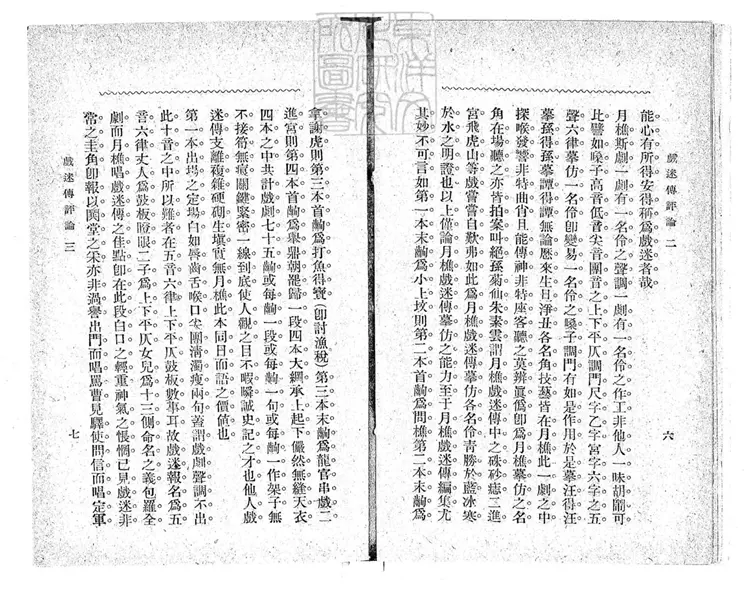 戲迷傳評論 二
能心有所得安得稱爲戲迷者哉。
月樵斯劇一劇有一名伶之聲調一劇有一名伶之作工非他人一味胡鬧可
比譬如嗓子高音低音尖音團音之上下平仄調門尺字乙字宮字六字之五
聲六律摹仿一名伶卽變易一名伶之嗓子調門有如是作用於是摹汪得汪
摹孫得孫摹譚得譚無論歷來生旦淨丑各名角技藝皆在月樵此一劇之中
探喉發響非特曲肖且能傳神非特座客聽之莫辨眞僞卽爲月樵摹仿之名
角在場聽之亦皆拍案叫絕孫菊仙朱素雲謂月樵戲迷傳中之硃砂痣三進
宮飛虎山等戲嘗嘗自歎弗如此爲月樵戲迷傳摹仿各名伶靑勝於藍冰寒
於水之明證也以上僅論月樵戲迷傳摹仿之能力至于月樵戲迷傳編集尤
其妙不可言如第一本末齣爲小上坟則第二本首齣爲問樵第二本末齣爲
六
拿謝虎則第三本首齣爲打魚得寶(卽討漁稅)第三本末齣爲龍官串戲二
進宮則第四本首齣爲舉鼎朝罷歸一段四本大綱承上起下儼然無縫天衣
四本之中共計戲劇七十五齣或每齣一段或每齣一句或每齣一作架子無
不接筍無痕關鍵緊密一線到底使人觀之目不暇瞬誠史記之才也他人戲
迷傳支離複雜硬砌生塡實無月樵此本同日而語之價値也。
第一本出塲之定塲白如唇齒舌喉口尖團淸濁瘦兩句蓋謂戲劇聲調不出
此十音之中所以難者在五音六律上下平仄鼓板數事耳故戲迷報名爲五
音六律丈人爲鼓板瞪眼二子爲上下平仄女兒爲十三側命名之義包羅全
劇而月樵唱戲迷傳之佳點卽在此段白口之輕重神氣之悵惘已見戲迷非
常之圭角卽報以鬨堂之采亦非過譽出門而唱罵曹見驛使問信而唱定軍
戲迷傳評論 三
七